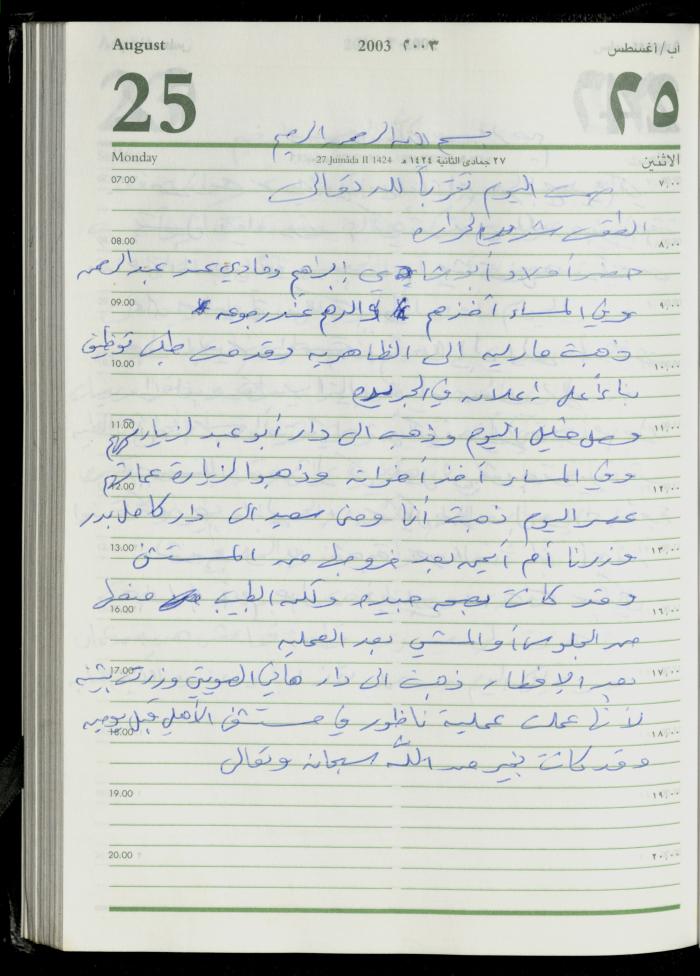 August 2003 ٢٠٠٣ آب/اغسطس
25 ٢٥
بسم الله الرحمن الرحيم
Monday 27 Jumada II 1424 ٢٧ جمادى الثانية ١٤٢٤ هـ الاثنين
07.00 صمت اليوم تقرباً لله تعالى ٧,٠٠
الطقس شديد الحرارة
08.00 ٨,٠٠
حضر أولاد أبو شادي إبراهيم وفادي عند عبد الرحمن
09.00 وفي المساء أخذهم والدهم عند رجوعه ٩,٠٠
ذهبت مارليه الى الظاهرية وقدمت طلب توظيف
10.00 ١٠,٠٠
بناءً على إعلان في الجريدة
11.00 وصل خليل اليوم وذهب الى دار أبو عبد لزيارتهم ١١,٠٠
وفي المساء أخذ أخواته وذهبوا لزيارة عماتهم
12.00 ١٢,٠٠
عصر اليوم ذهبت أنا ومنى سعيد الى دار كامل بدر
13.00 وزرنا أم أيمن بعد خروجها من المستشفى ١٣,٠٠
وقد كانت جيدة ولكن الطبيب منعها
16.00 ١٦,٠٠
من الجلوس أو المشي بعد العملية
17.00 بعد الإفطار ذهبت الى دار هاني العويوي وزرت بثينة ١٧,٠٠
لأنها عملت عملية ناظور في مستشفى الأهلي قبل يومين
18.00 ١٨,٠٠
وقد كانت بخير من الله سبحانه وتعالى
19.00 ١٩,٠٠
20.00 ٢٠,٠٠